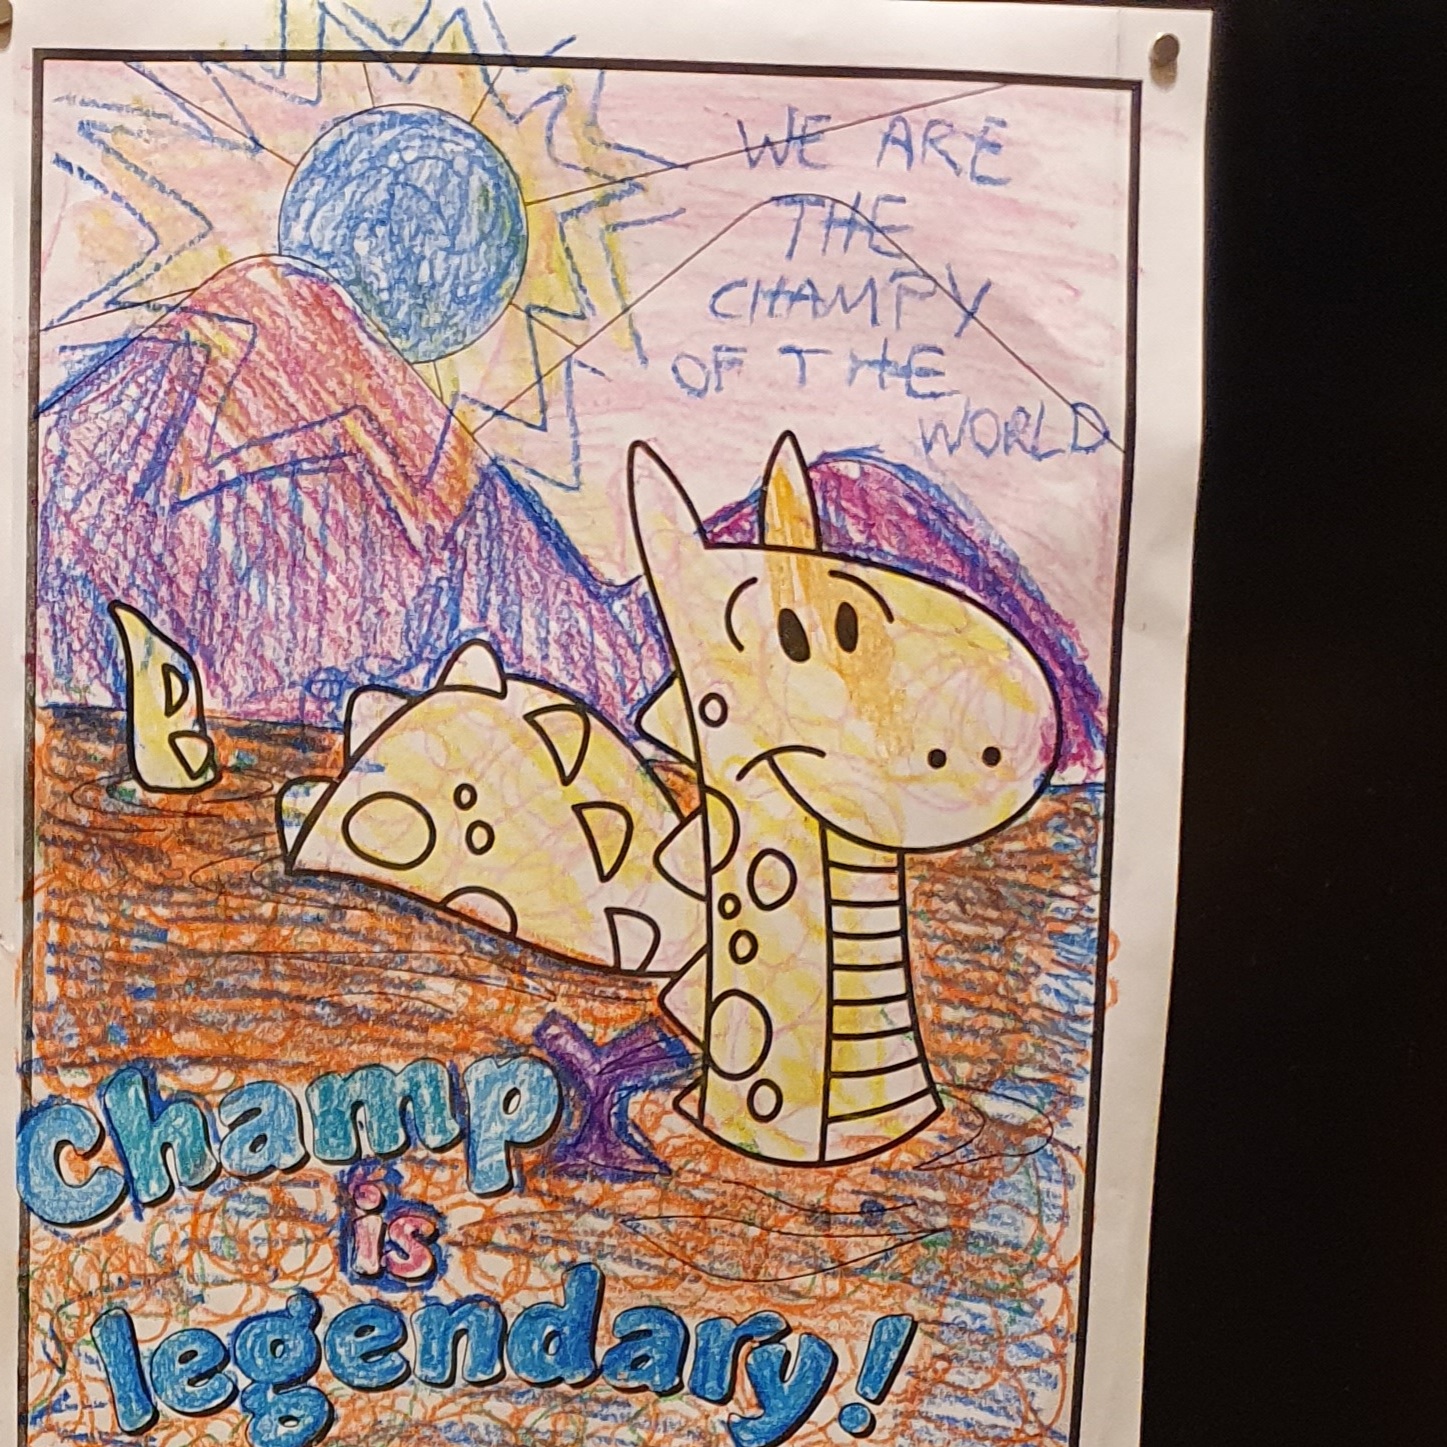 WE ARE
THE
CHAMPY
OF THE
WORLD
champY
is
legendary!